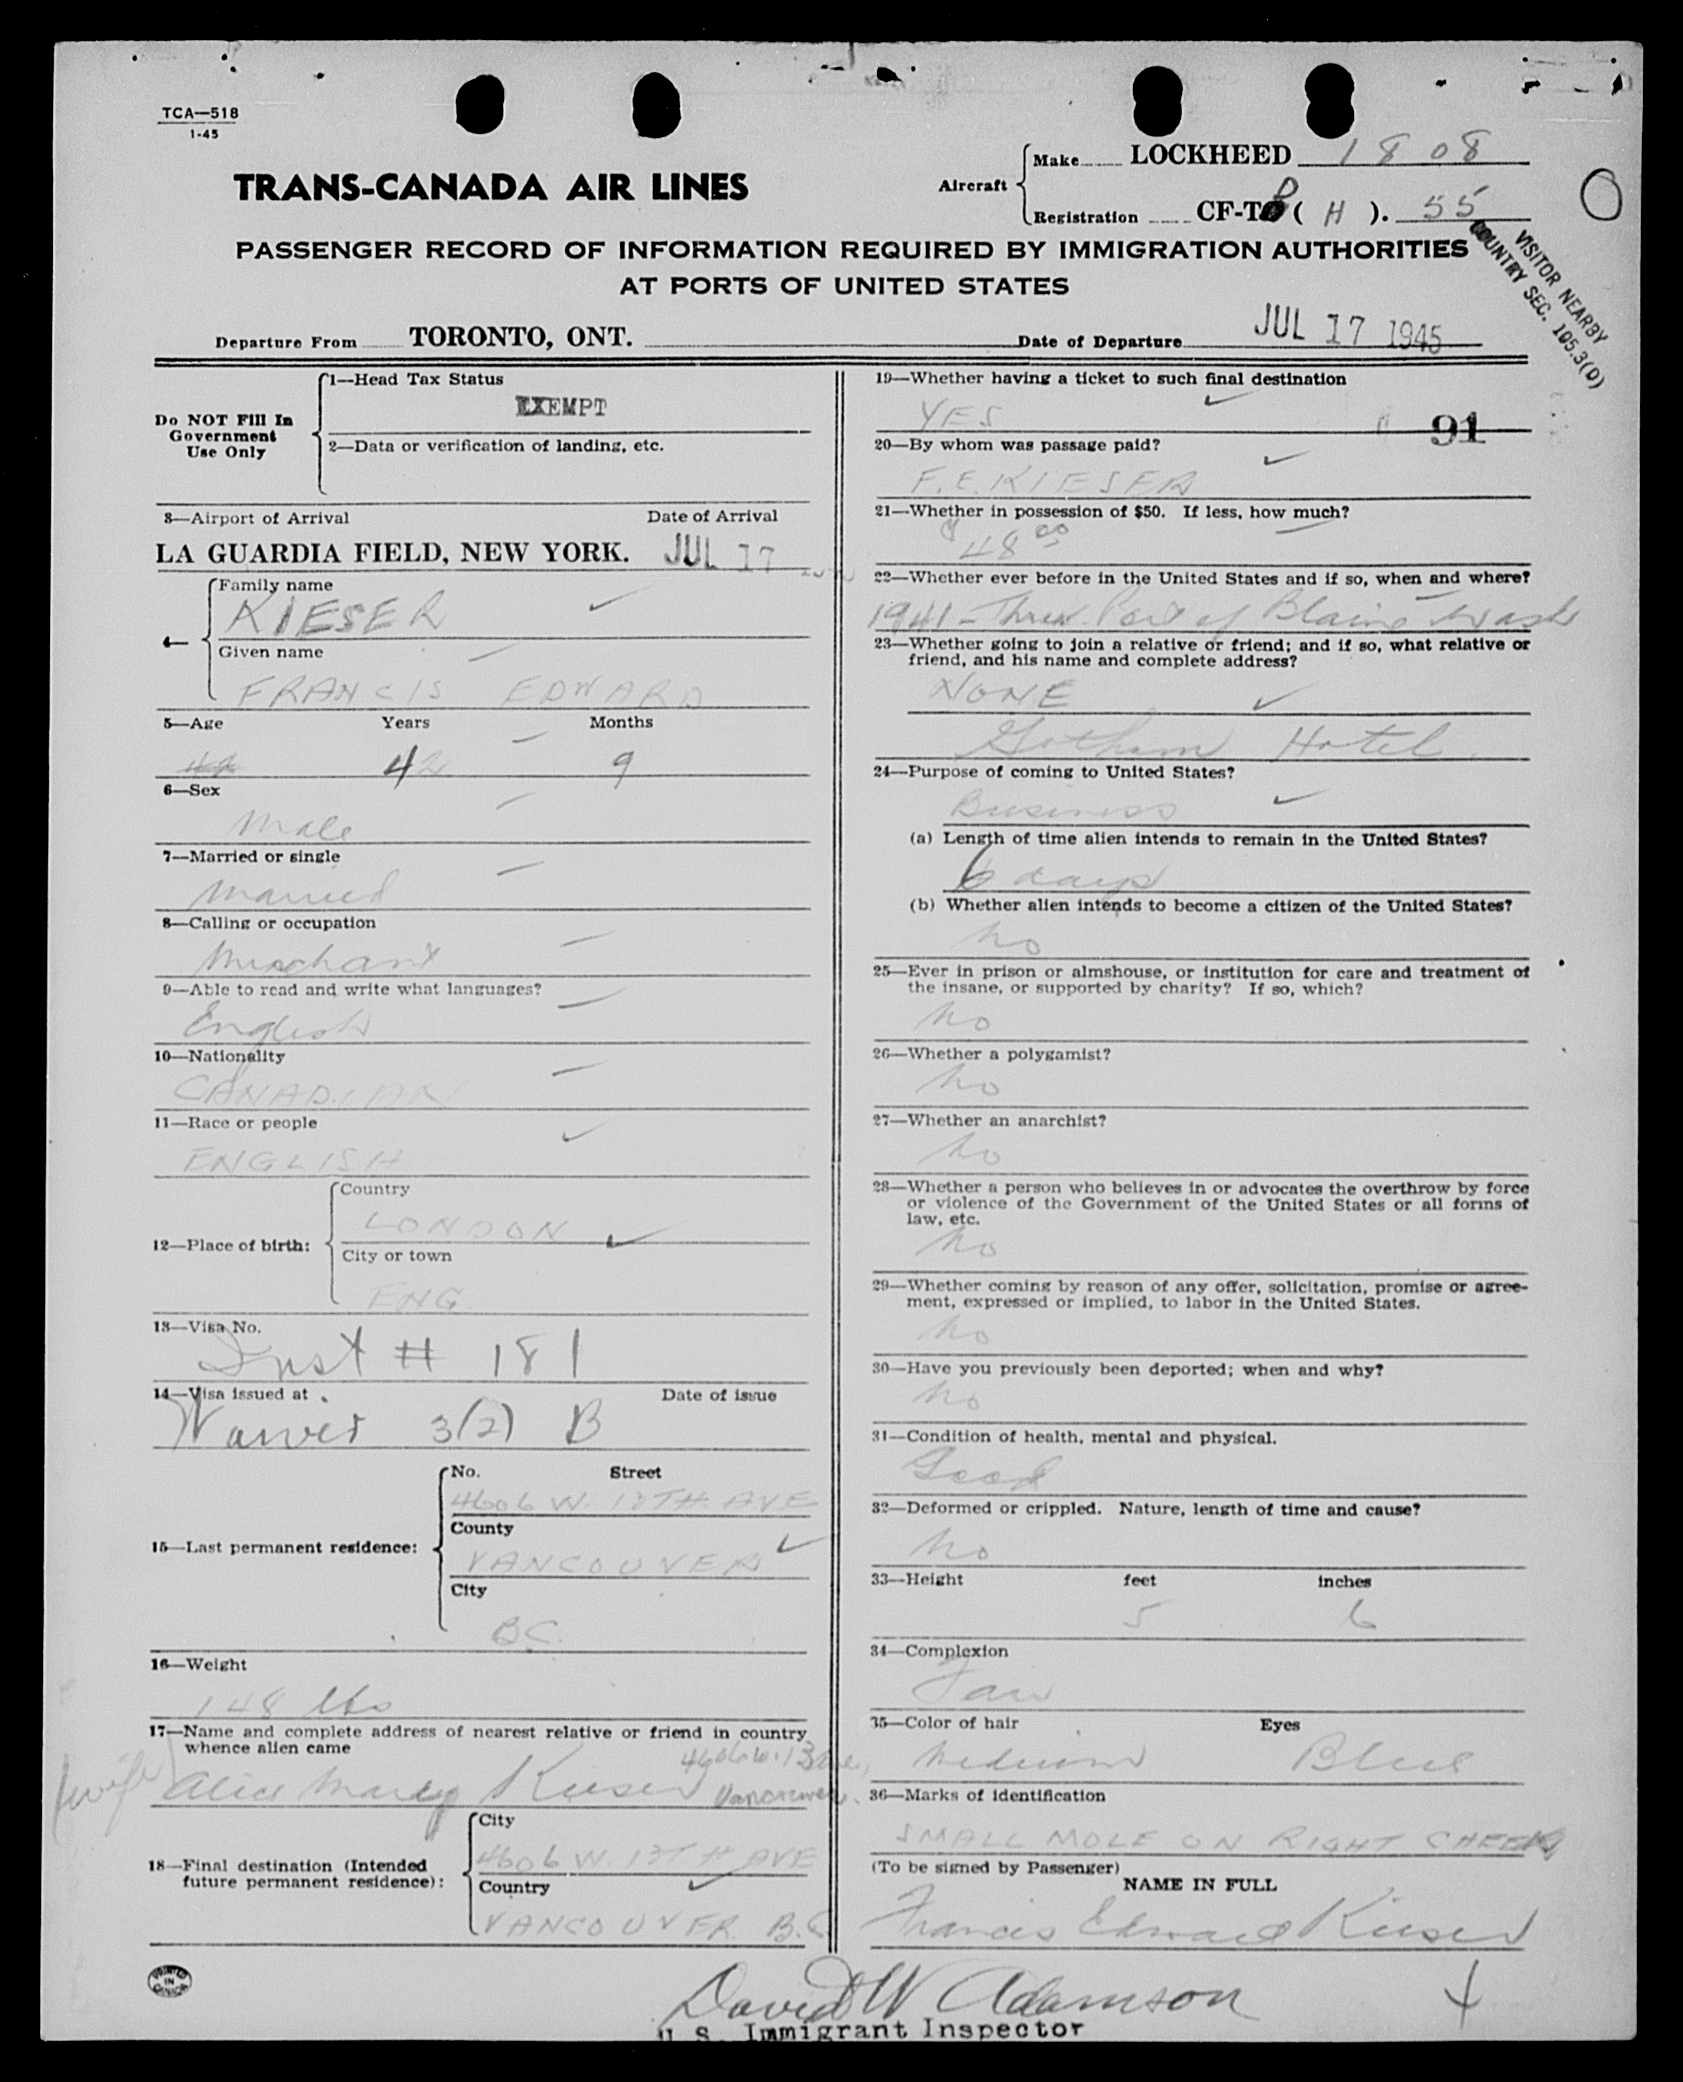 TCA—518
1-45
TRANS-CANADA AIR LINES
Aircraft
Make LOCKHEED 1808
Registration CF-T ( H ). 55
PASSENGER RECORD OF INFORMATION REQUIRED BY IMMIGRATION AUTHORITIES
AT PORTS OF UNITED STATES
VISITOR NEARBY
COUNTRY SEC. 195.3(D)
Departure From TORONTO, ONT.
Date of Departure JUL 17 1945
Do NOT Fill In
Government
Use Only
1—Head Tax Status
EXEMPT
2—Data or verification of landing, etc.
3—Airport of Arrival Date of Arrival
LA GUARDIA FIELD, NEW YORK. JUL 17
4—
Family name
KIESER
Given name
FRANCIS EDWARD
5—Age Years Months
42 42 9
6—Sex
Male
7—Married or single
Married
8—Calling or occupation
Merchant
9—Able to read and write what languages?
English
10—Nationality
CANADIAN
11—Race or people
ENGLISH
12—Place of birth:
Country
LONDON
City or town
ENG
13—Visa No.
Inst # 181
14—Visa issued at Date of issue
Waiver 3(2) B
15—Last permanent residence:
No. Street
4606 W. 13TH AVE
County
VANCOUVER
City
B.C.
16—Weight
148 lbs
17—Name and complete address of nearest relative or friend in country
whence alien came
4606 W. 13 Ave,
wife Alice Mary Kieser Vancouver.
18—Final destination (Intended
future permanent residence):
City
4606 W. 13TH AVE
Country
VANCOUVER B.C.
PRINTED
IN
CANADA
19—Whether having a ticket to such final destination
YES
91
20—By whom was passage paid?
F. E. KIESER
21—Whether in possession of $50. If less, how much?
$48.00
22—Whether ever before in the United States and if so, when and where?
1941 - Thru Port of Blaine Wash
23—Whether going to join a relative or friend; and if so, what relative or
friend, and his name and complete address?
NONE
Gotham Hotel.
24—Purpose of coming to United States?
Business
(a) Length of time alien intends to remain in the United States?
6 days
(b) Whether alien intends to become a citizen of the United States?
No
25—Ever in prison or almshouse, or institution for care and treatment of
the insane, or supported by charity? If so, which?
No
26—Whether a polygamist?
No
27—Whether an anarchist?
No
28—Whether a person who believes in or advocates the overthrow by force
or violence of the Government of the United States or all forms of
law, etc.
No
29—Whether coming by reason of any offer, solicitation, promise or agree-
ment, expressed or implied, to labor in the United States.
No
30—Have you previously been deported; when and why?
No
31—Condition of health, mental and physical.
Good
32—Deformed or crippled. Nature, length of time and cause?
No
33—Height feet inches
5 6
34—Complexion
Fair
35—Color of hair Eyes
Medium Blue
36—Marks of identification
SMALL MOLE ON RIGHT CHEEK
(To be signed by Passenger)
NAME IN FULL
Francis Edward Kieser
David W Adamson
U. S. Immigrant Inspector